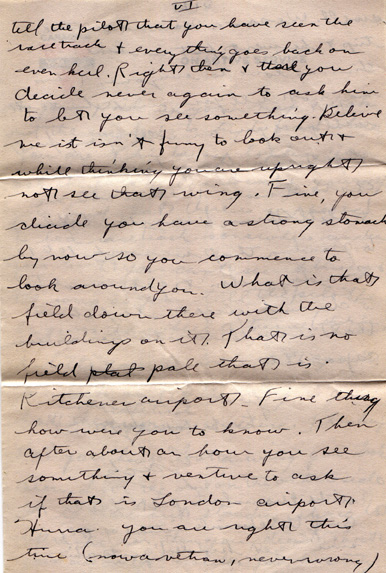 VI
tell the pilot that you have seen the
racetrack & everything goes back on
even keel. Right then & there you
decide never again to ask him
to let you see something. Believe
me ist isn't funny to look out &
while thinking you are upright
not see that wing. Fine, you
decide you have a strong stomach
by now so you commence to
look around you. What is that
field down there with the
buildings on it. That is no
field plat pale that is
Kitchener airport. Fine thing
how were you to know. Then
after about an hour you see
something & venture to ask
if that is London airport.
Hurra. you are right this
time (now a vethan, never wrong)